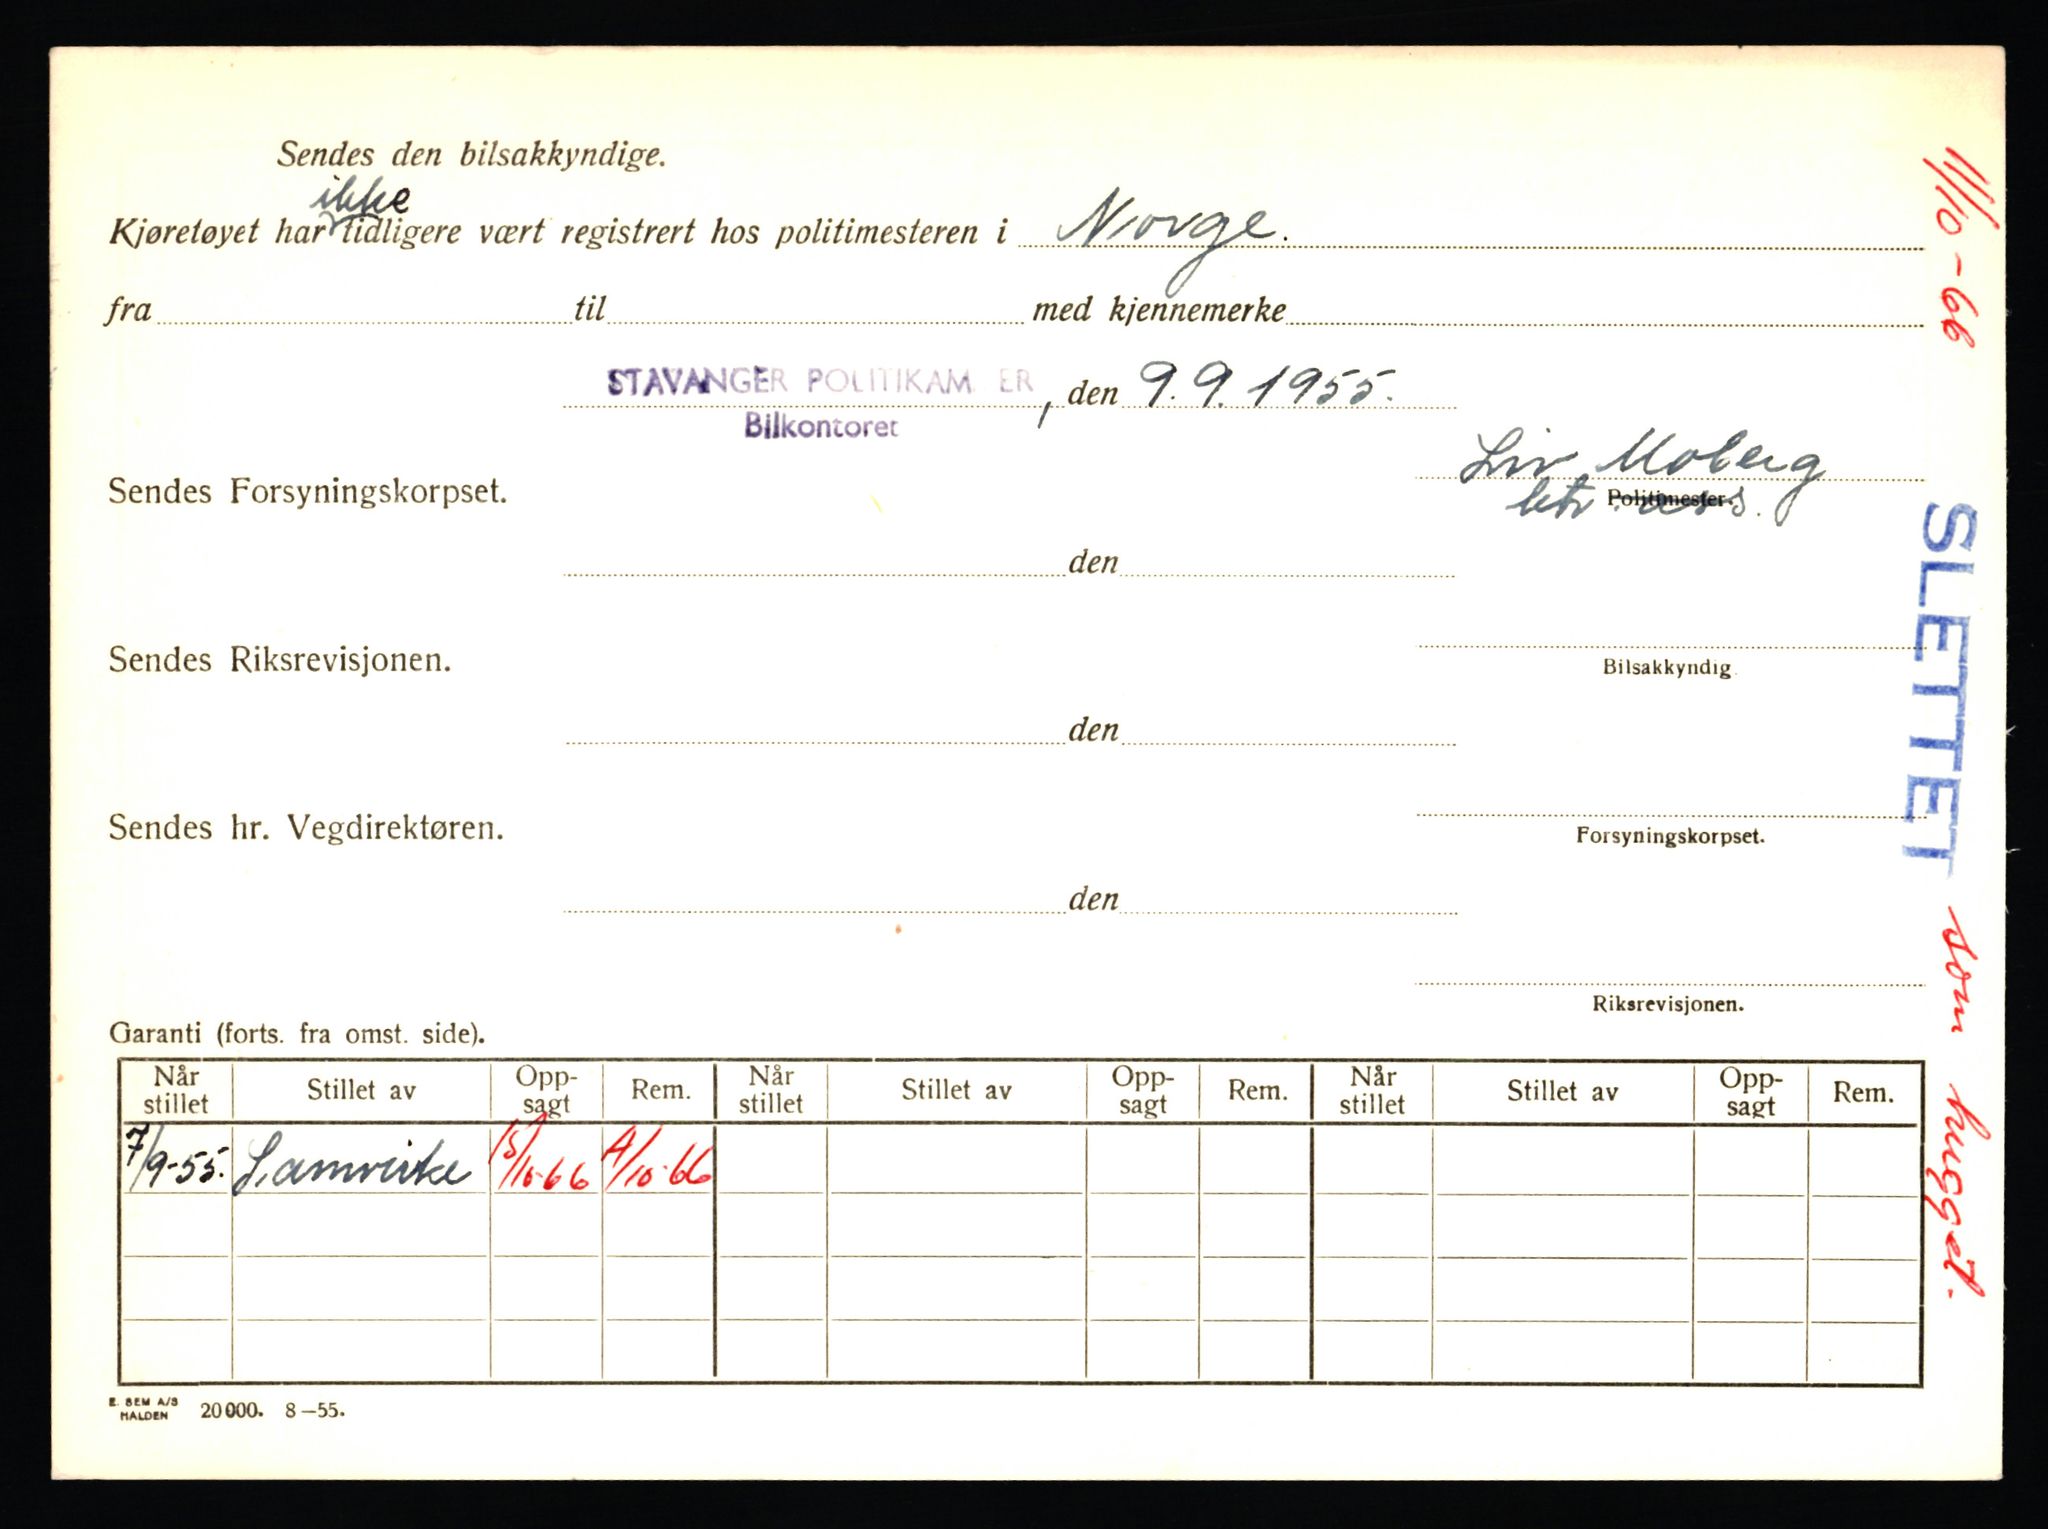 Sendes den bilsakkyndige.
ikke
Kjøretøyet har tidligere vært registrert hos politimesteren i Norge.
fra til med kjennemerke
STAVANGER POLITIKAM ER, den 9.9.1955.
Bilkontoret
Liv Moberg
Sendes Forsyningskorpset.
Politimester.
ktr. ass.
den
Sendes Riksrevisjonen.
Bilsakkyndig
den
Sendes hr. Vegdirektøren.
Forsyningskorpset.
den
Riksrevisjonen.
Garanti (forts. fra omst. side).
Når stillet Stillet av Opp-sagt Rem. Når stillet Stillet av Opp-sagt Rem. Når stillet Stillet av Opp-sagt Rem.
7/9-55. Samvirke 15/10-66 A/10-66
E. SEM A/S
HALDEN 20000. 8—55.
11/10-66 SLETTET som hugget.